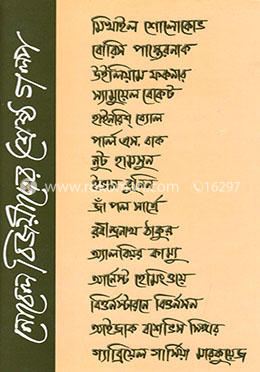 নোবেল বিজয়ীদের শ্রেষ্ঠ গল্প
মিখাইল শোলোকোভ
বোরিস পাস্তেরনাক
উইলিয়াম ফকনার
স্যামুয়েল বেকেট
হাইনরিখ ব্যোল
পার্ল এস. বাক
নুট হামসুন
ইভান বুনিন
জাঁ পল সার্ত্রে
রবীন্দ্রনাথ ঠাকুর
অ্যালবেয়ার কাম্যু
আর্নেস্ট হেমিংওয়ে
বিওর্নস্টারনে বিওর্নসন
আইজাক বশেভিস সিঙ্গার
গ্যাব্রিয়েল গার্সিয়া মারকুয়েজ
16297